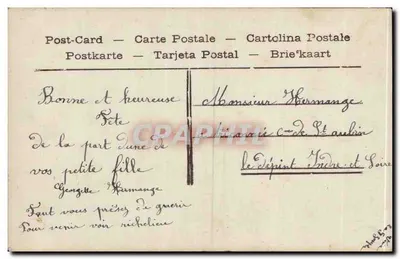 Post-Card — Carte Postale — Cartolina Postale
Postkarte — Tarjeta Postal — Briefkaart
Bonne et heureuse
Fête
de la part d'une de
vos petite fille
Georgette Hermange
Faut vous pressez de guerir
Pour venir voir richelieu
Monsieur Hermange
cne de St aubin
le dépint Indre et Loire
CPARAMA